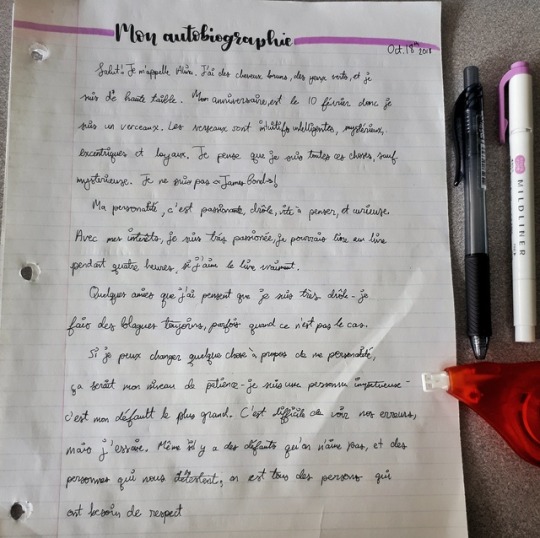 Mon autobiographie
Oct. 18th 2018
Salut! Je m'appelle Alix. J'ai des cheveux bruns, des yeux verts, et je
suis de haute taible. Mon anniversaire, est le 10 février donc je
suis un verceaux. Les verseaux sont intuitifs, intelligentes, mystérieux,
excentriques et loyaux. Je pense que je suis toutes ces choses, sauf
mysterieuse. Je ne suis pas «James Bond»!
Ma personalité, c'est passionante, drôle, vite à penser, et curieuse.
Avec mes intérêts, je suis très passionée, je pourrais lire un livre
pendant quatre heures, si j'aime le livre vraiment.
Quelques amies que j'ai pensent que je suis très drôle - je
fais des blagues toujours, parfois quand ce n'est pas le cas.
Si je peux changer quelque chose à propos de ma personalité,
ça serait mon niveau de patience - je suis une personne -
c'est mon défault le plus grand. C'est difficile de voir nos erreurs,
mais j'essaie. Même s'il y a des défauts qu'on n'aime pas, et des
personnes qui nous détestent, on est tous des persons qui
ont besoin de respect
MILDLINER